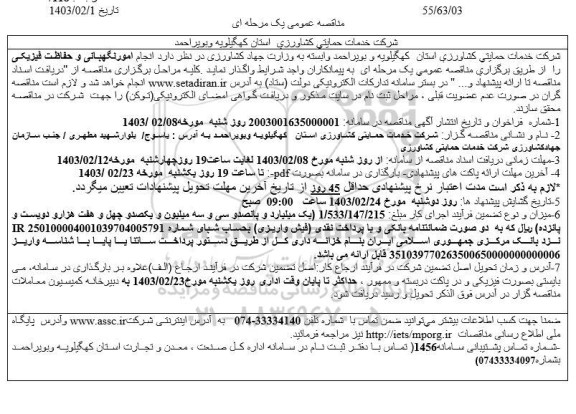 تاریخ 1403/02/1
55/63/03
مناقصه عمومی یک مرحله ای
شرکت خدمات حمایتي کشاورزي استان کهگیلویه وبویراحمد
شرکت خدمات حمایتي کشاورزي استان کهگیلویه و بویراحمد وابسته به وزارت جهاد کشاورزي در نظر دارد انجام امورنگهبانی و حفاظت فیزیکی
را از طریق برگزاري مناقصه عمومي یک مرحله ای به پیمانکاران واجد شرایط واگذار نماید .کلیه مراحل برگزاري مناقصه از "دریافت اسناد
مناقصه تا ارائه پیشنهاد و... " در بستر سامانه تدارکات الکترونیکي دولت (ستاد) به آدرس www.setadiran.ir انجام خواهد شد و لازم است مناقصه
گران در صورت عدم عضویت قبلی ، مراحل ثبت نام در سایت مذکور و دریافت گواهی امضای الکترونیکی(توکن) را جهت شرکت در مناقصه
محقق سازند.
1-شماره فراخوان و تاریخ انتشار آگهی مناقصه در سامانه: 2003001635000001 از روز شنبه مورخه02/08/ 1403
2- نام و نشانی مناقصه گزار: شرکت خدمات حمایتی کشاورزی استان کهگیلویه وبویراحمد به آدرس : یاسوج/ بلوارشهید مطهری / جنب سازمان
جهادکشاورزی شرکت خدمات حمایتی کشاورزی
3-مهلت زمانی دریافت اسناد مناقصه از سامانه: از روز شنبه مورخ 1403/02/08 لغایت ساعت19 روزچهارشنبه مورخه1403/02/12
4- آخرین مهلت ارائه پاکت های پیشنهادی- بارگذاری در سامانه بصورت pdf-: تا ساعت 19 روز یکشنبه مورخه 02/23/ 1403
*لازم به ذکر است مدت اعتبار نرخ پیشنهادی حداقل 45 روز از تاریخ آخرین مهلت تحویل پیشنهادات تعیین میگردد.
5-تاریخ گشایش پیشنهاد ها: روز دوشنبه مورخ 1403/02/24 ساعت 09:00 صبح
6-میزان و نوع تضمین فرآیند اجرای کار مبلغ: 1/533/147/215 (یک میلیارد و پانصدو سی و سه میلیون و یکصدو چهل و هفت هزارو دویست و
پانزده) ریال که به دو صورت ضمانتنامه بانکی و با پرداخت نقدی (فیش واریزی) بحساب شبای شماره IR 250100004001039704005791
نزد بانک مرکزی جمهوری اسلامی ایران بنام خزانه داری کل از طریق دستور پرداخت ساتنا یا پایا با شناسه واریز
351039770263500650000000000006 قابل ارائه می باشد.
7-آدرس و زمان تحویل اصل تضمین شرکت در فرآیند ارجاع کار:اصل تضمین شرکت در فرآیند ارجاع (الف)علاوه بر بارگذاری در سامانه، می
بایستی بصورت فیزیکی و در پاکت دربسته و ممهور ، حداکثر تا پایان وقت اداری روز یکشنبه مورخ1403/02/23 به دبیرخانه کمیسیون معاملات
مناقصه گزار در آدرس فوق الذکر تحویل و رسید دریافت شود.
ضمنا جهت کسب اطلاعات بیشتر می‌توانید ضمن تماس با شماره تلفن 33334140-074 به آدرس اینترنتی شرکتwww.assc.ir وآدرس پایگاه
ملی اطلاع رسانی مناقصات http://iets/mporg.ir نیز مراجعه فرمائید.
-شماره تماس پشتیبانی سامانه1456( تماس با دفتر ثبت نام در سامانه اداره کل صنعت ، معدن و تجارت استان کهگیلویه وبویراحمد
بشماره07433334097)